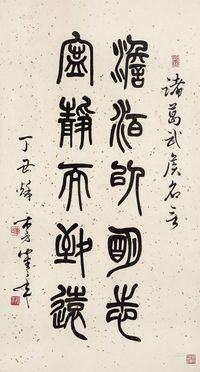 諸葛武侯名言
澹泊以明志
寧靜而致遠
丁丑秋